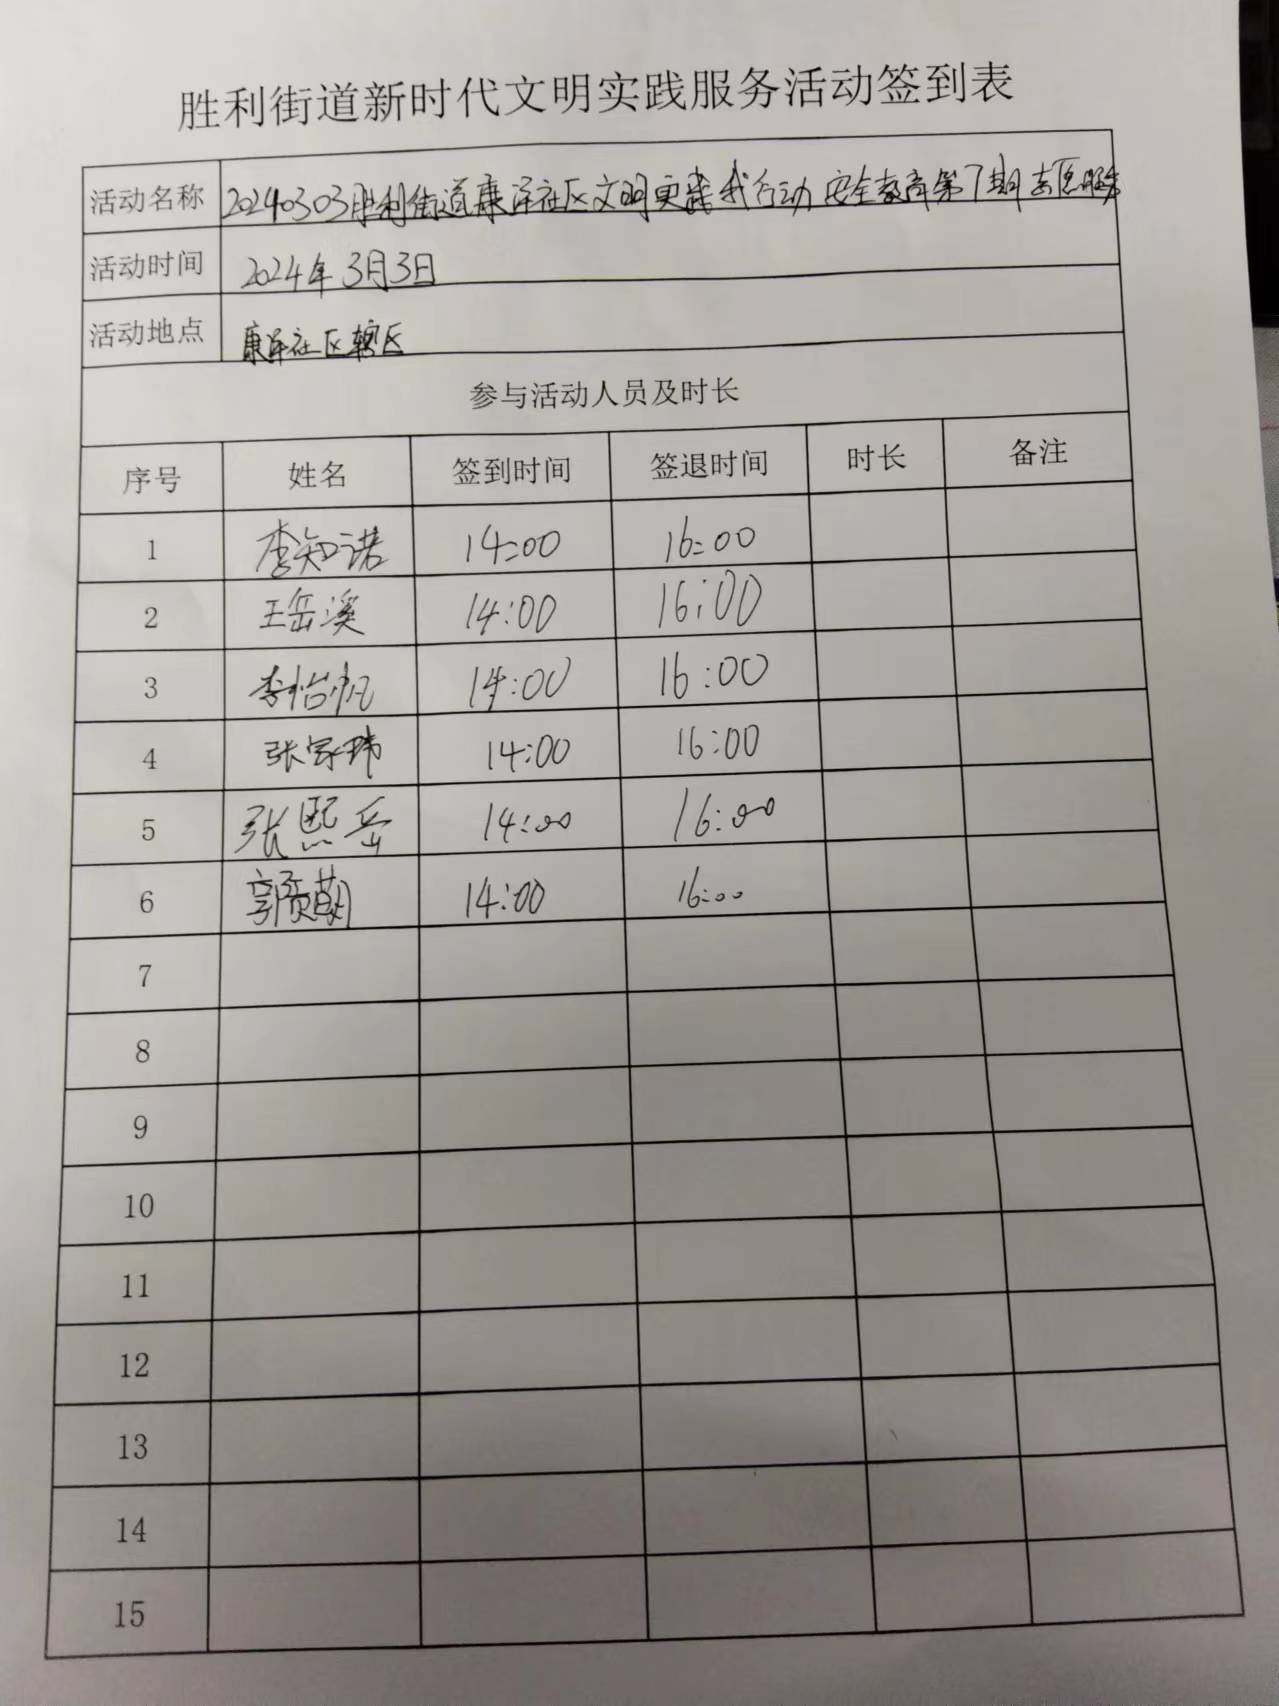 胜利街道新时代文明实践服务活动签到表
活动名称 20240303胜利街道康泽社区文明实践我行动 安全教育第7期志愿服务
活动时间 2024年3月3日
活动地点 康泽社区辖区
参与活动人员及时长
序号 姓名 签到时间 签退时间 时长 备注
1 李知诺 14:00 16:00
2 王岳溪 14:00 16:00
3 李怡帆 14:00 16:00
4 张家玮 14:00 16:00
5 张熙岳 14:00 16:00
6 14:00 16:00
7
8
9
10
11
12
13
14
15